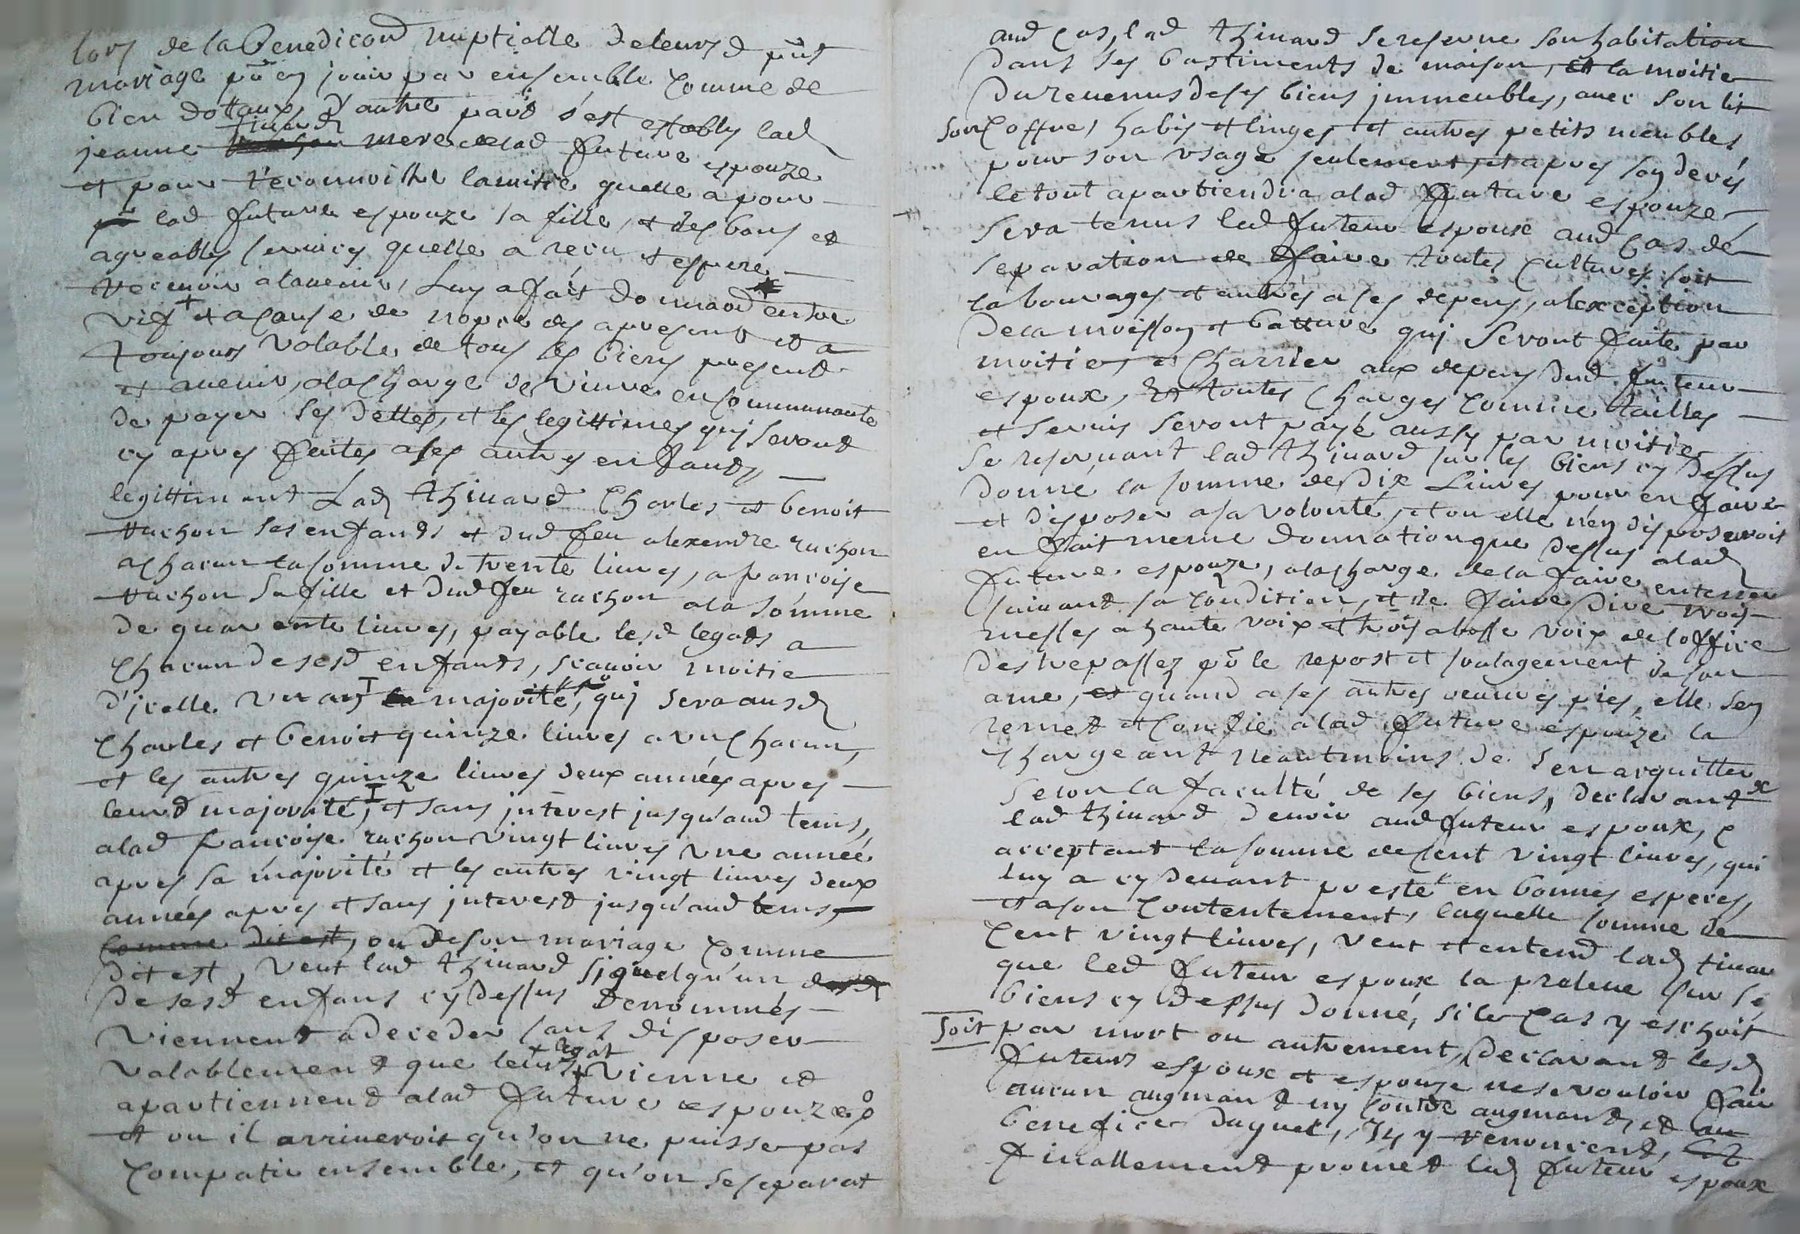 lors de la Benedicond nuptialle de leurs d pnt
mariage pr en jouir par ensemble comme de
bien dotaux, d'autre part s'est establys lad
jeanne tinard mere de lad future espouze
et pour reconnoistre lamitié quelle a pour
lad future espouze sa fille, et des bons et
agreables services quelle a recu et espere
recevoir alavenir, Luy a fait donnaond entre
vifs + et a cause de nopces des apresent et a
toujours valable de tous les biens present
et avenir, alacharge de vivre en communauté
de payer ses dettes, et les legittimes qui seront
cy apres faites ases autres enfants
legittimant Lad thinard Charles et benoit
rachon ses enfants et dud feu alexendre rachon
a chacun la somme de trente livres, a francoise
rachon sa fille et dud feu rachon ala somme
de quarente livres, payable lesd legats a
chacun de sesd enfants, scavoir moitié
d'icelle un an majorité, qui sera ausd
Charles et benoit quinze livres a un chacun,
et les autres quinze livres deux années apres
leurd majorité, et sans interest jusqu'aud tems,
alad francoise rachon vingt livres une année
apres sa majorité et les autres vingt livres deux
années apres et sans interest jusqu'aud tems
comme dit est, ou de son mariage comme
dit est, veut lad thinard si quelqu'un
de sesd enfans cy dessus denommés
viennent a deceder sans disposer
valablement que leurs + legat vienne et
apartiennent alad future espouze
et ou il arriveroit qu'on ne puisse pas
compatir ensemble, et qu'on se separat
aud cas, lad thinard se reserve son habitation
dans ses bastiments de maison, et la moitié
du revenus de ses biens immeubles, avec son lit
son coffre, habis et linges et autres petits meubles
pour son usage seulement et apres son deces
le tout apartiendra alad future espouze
sera tenus led futeur espoux aud cas de
separation de faire toutes cultures soit
labourages et autres a ses depens, alexception
de la moisson et batture qui seront faite par
moitié, et charrier aux depens dud futeur
espoux, et toutes charges comme tailles
et servis seront payé aussy par moitié
se reservant lad thinard sur les biens cy dessus
donné la somme de dix Livres pour en faire
et disposer a sa volonté, et ou elle n'en disposeroit
en fait meme donnation que dessus alad
future espouze, alacharge de la faire enterrer
suivant sa condition, et de faire dire trois
messes a haute voix et trois abasse voix de l'office
des trepassez pr le repost et soulagement de son
ame, et quand a ses autres oeuvres pies, elle sen
remet et confie alad future espouze la
chargeant neantmoins de sen acquitter
selon la faculté de ses biens, declarant
lad thinard devoir aud futeur espoux, c
acceptant la somme de cent vingt livres, qui
luy a cy devant presté en bonnes especes,
et a son contentement, laquelle somme de
cent vingt livres, veut et entend lad tinar
que led futeur espoux la preleve sur se
biens cy dessus donné, si le cas y eschoit
soit par mort ou autrement, declarant lesd
futeurs espoux et espouze ne se vouloir fair
aucun augmant ny contre augmant, et au
benefice duquel, ils y renoncent,
finallement promet lad futeur espoux